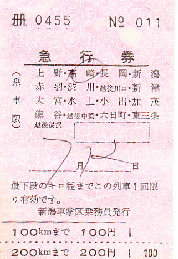 冊 0455 No 011
急行券
上野・高崎・長岡・新潟
赤羽・渋川・越後川口・新津
大宮・水上・小出・加茂
熊谷・越後中里・六日町・東三条
越後湯沢
月 日
最下段のキロ程までこの列車1回限
り有効です。
新潟車掌区乗務員発行
100kmまで 100円
200kmまで 200円 100